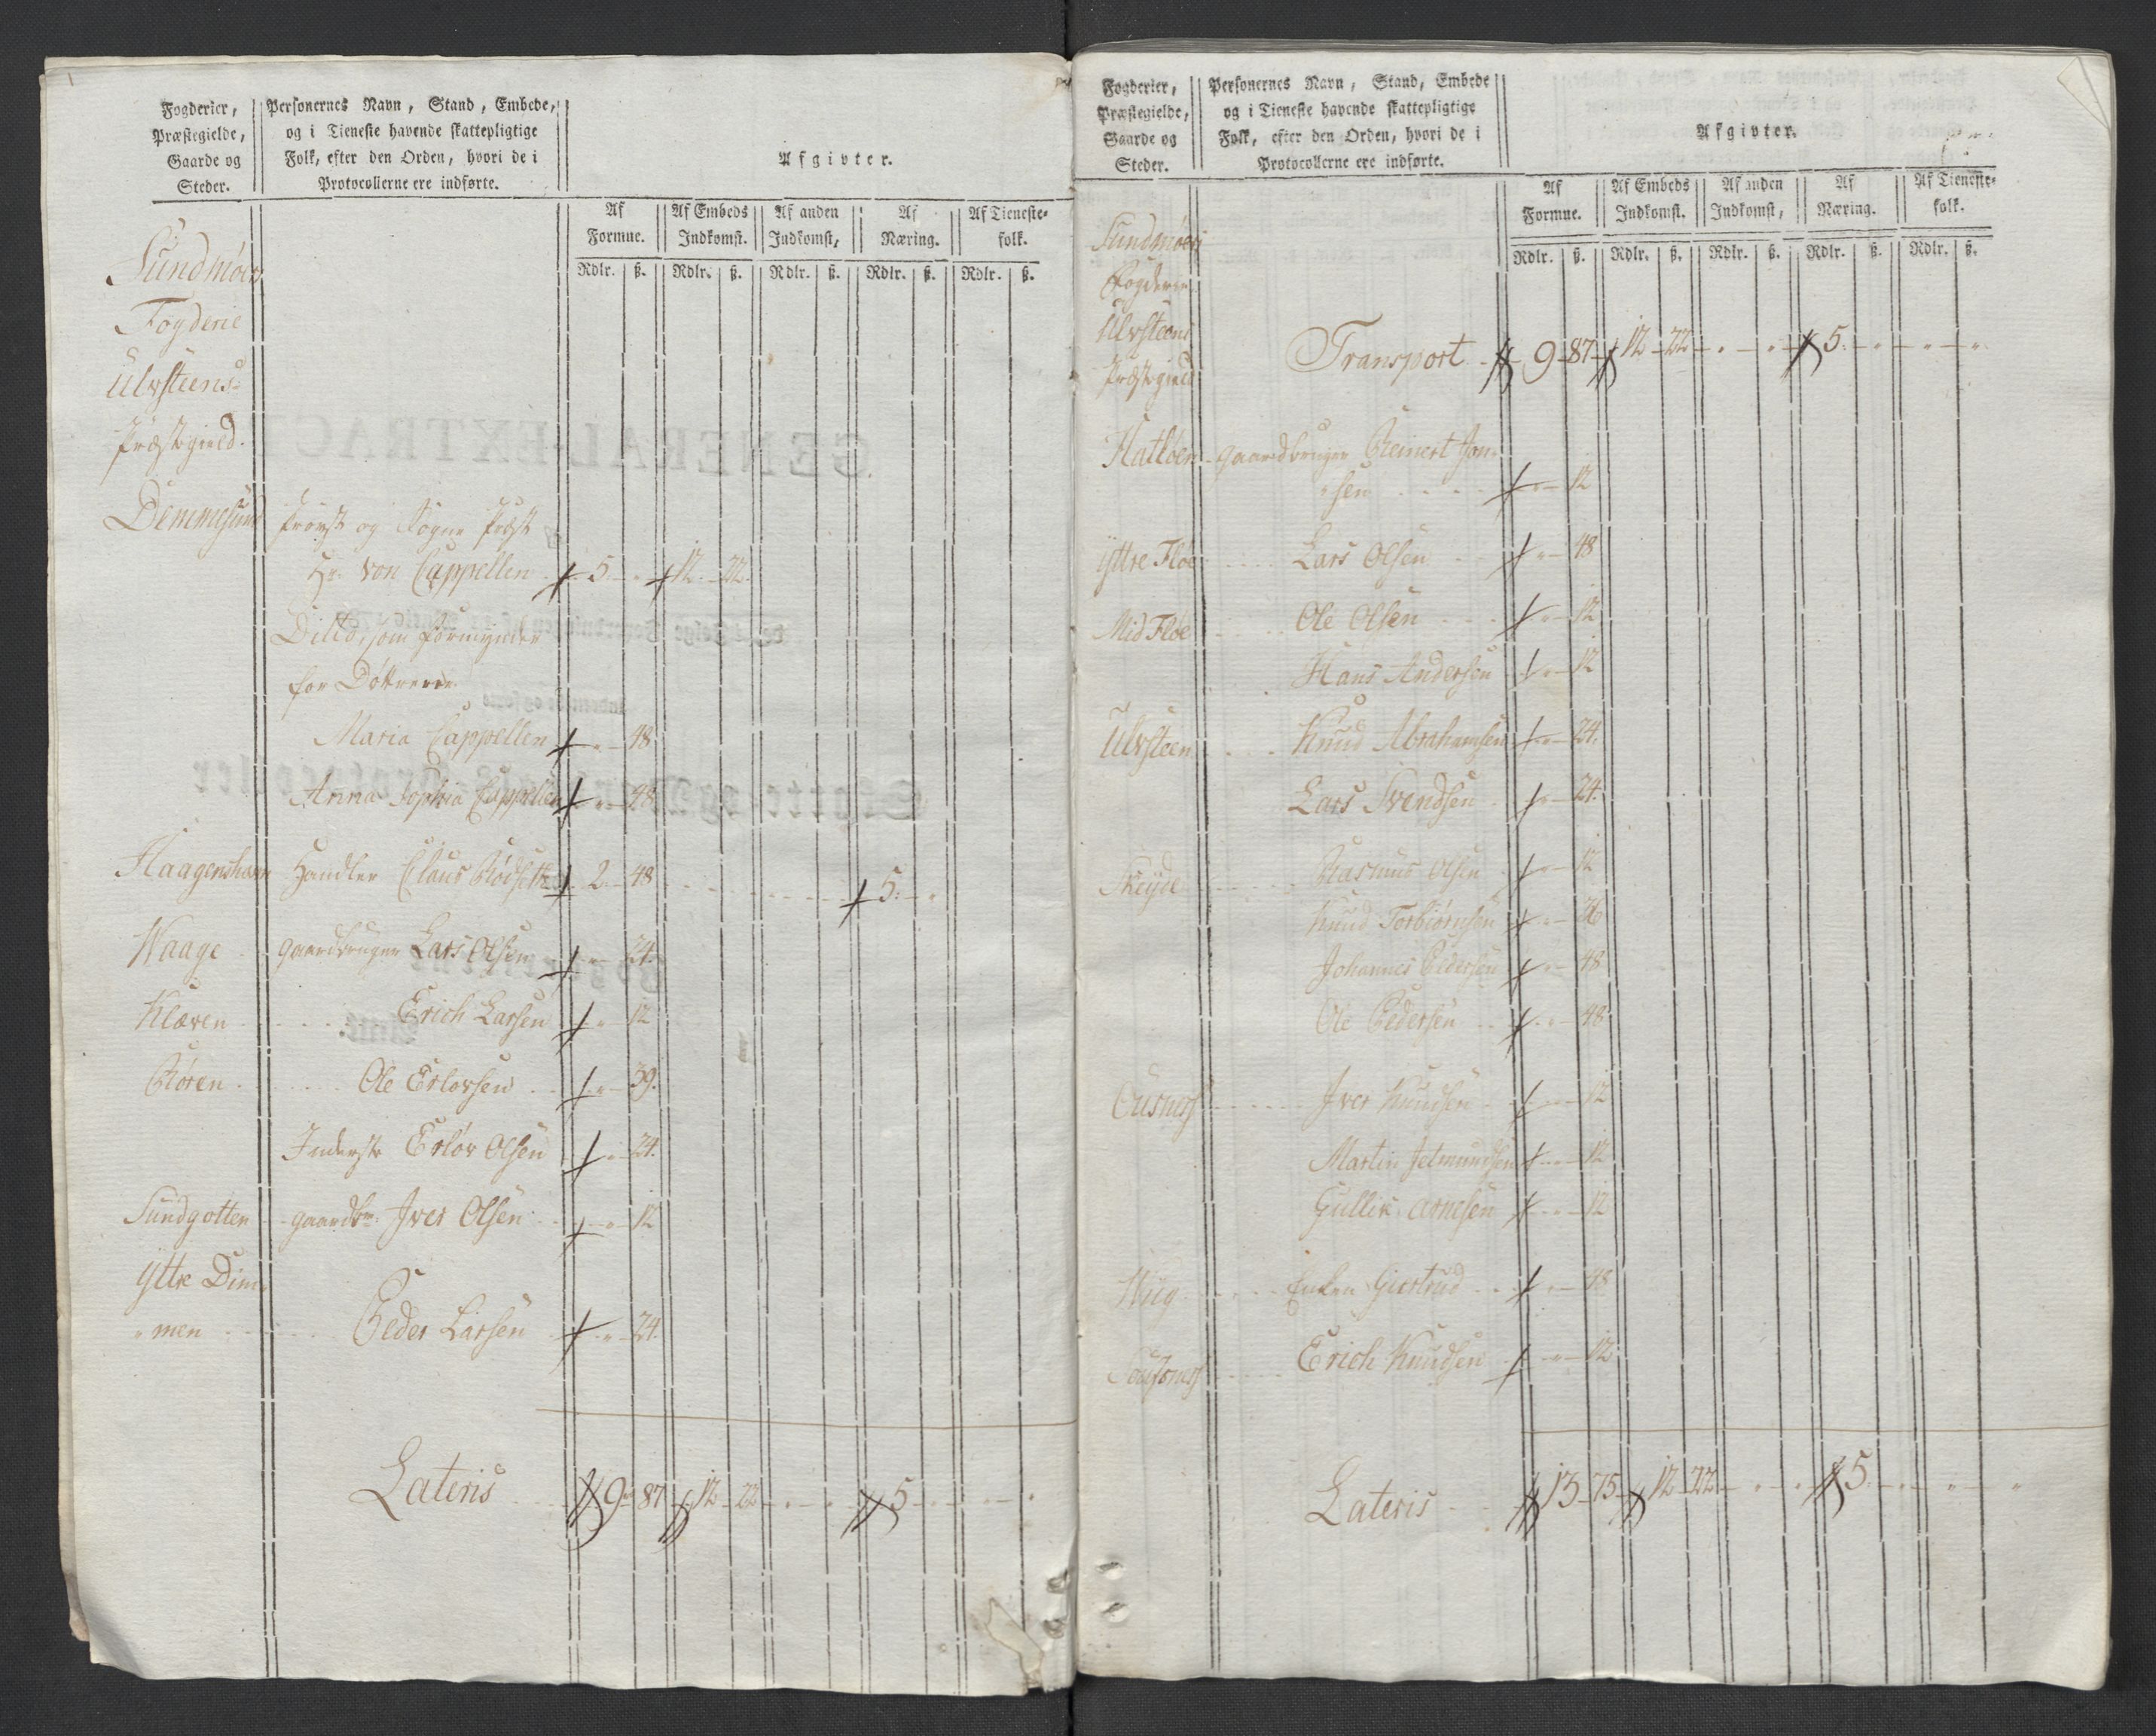 Fogderier,
Præstegielde,
Gaarde og
Steder.
Personernes Navn, Stand, Embede,
og i Tieneste havende skattepligtige
Folk, efter den Orden, hvori de i
Protocollerne ere indførte.
Afgivter.
Af Formue. Af Embeds Indkomst. Af anden Indkomst, Af Næring. Af Tieneste- folk.
Rdlr. ß. Rdlr. ß. Rdlr. ß. Rdlr. ß. Rdlr. ß.
Sundmøers
Fogderie
Ulvsteens-
Præstegield.
Demmesund Provst og Sogne Præst
Hr. von Cappellen 5 - " 12 - 22.
Ditto, som Formynder
for Døttrene.
Maria Cappellen " - 48
Anna Sophia Cappellen " - 48
Haagenshavn Handler Claus Rødseth 2 - 48 5. - "
Waage - gaardbruger Lars Olsen " - 24.
Klæven Erich Larsen " 12
Røren Ole Erlovsen " - 39.
Inderste Erlov Olsen " - 24.
Sundgotten - gaardbr: Iver Olsen " - 12
Yttre Dim-
"men Peder Larsen " - 24.
Lateris 9 - 87 - 12 - 22 - " - " - 5 - " - " - "
Fogderier,
Præstegielde,
Gaarde og
Steder.
Personernes Navn, Stand, Embede
og i Tieneste havende skattepligtige
Folk, efter den Orden, hvori de i
Protocollerne ere indførte.
Afgivter.
Af Formue. Af Embeds Indkomst. Af anden Indkomst, Af Næring. Af Tieneste- folk.
Rdlr. ß. Rdlr. ß. Rdlr. ß. Rdlr. ß. Rdlr. ß.
Sundmøers
Fogderie
Ulvsteens
Præstegield
Transport 9 - 87 - 12 - 22 - " - " - 5. - " - " - "
Hatløen - gaardbruger Reinert Jon-
"sen " - 12
Yttre Fløe Lars Olsen " - 48
Mid Fløe Ole Olsen " - 12
Hans Andersen " - 12
Ulvsteen Knud Abrahamsen " - 24.
Lars Svendsen " - 24.
Skeyde Rasmus Olsen " - 12
Knud Torbiørnsen " - 36
Johannes Pedersen " - 48
Ole Pedersen " - 48
Ousnes Iver Knudsen " - 12
Martin Jetmundsen " - 12
Gullik Arnesen " - 12
Hiig Enken Giertrud " - 48
Erich Knudsen " - 12
Lateris 13 - 75 - 12 - 22 - " - " - 5. - " - " - "